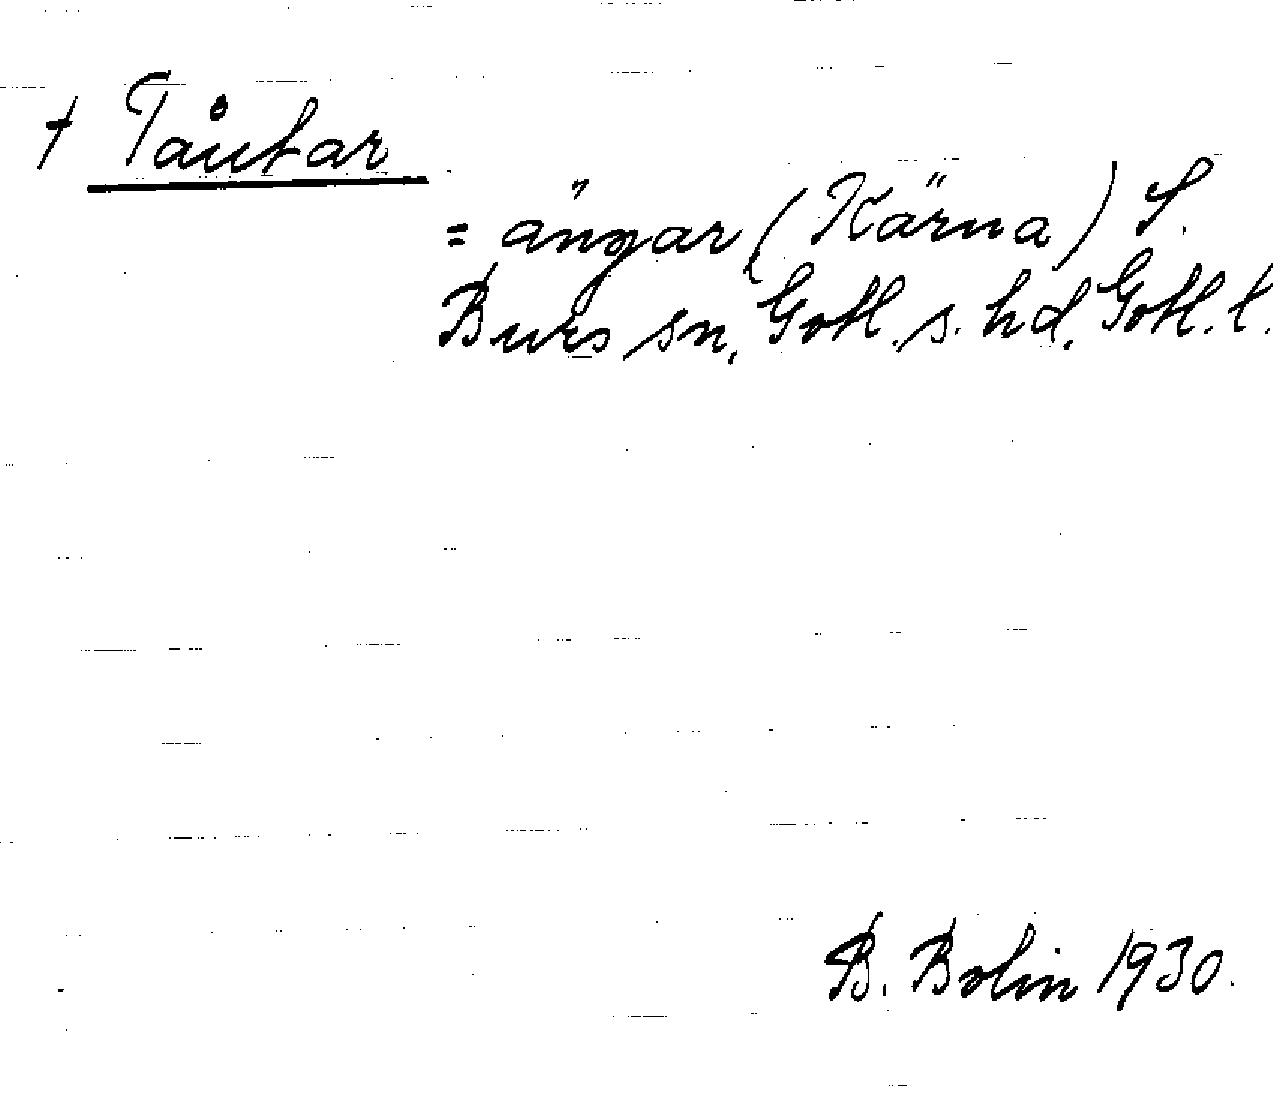 † Tåutar
= ängar (Kärna) S.
Burs sn, Gotl. s. hd, Gotl. l.
B. Bolin 1930.